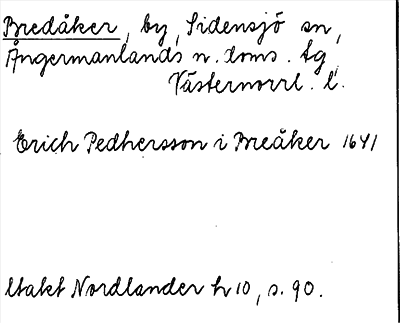 Bredåker, by, Sidensjö sn,
Ångermanlands n. doms. tg
Västernorrl. l.
Erich Pedhersson i Breåker 1641
Utakt Nordlander h 10, s. 90.